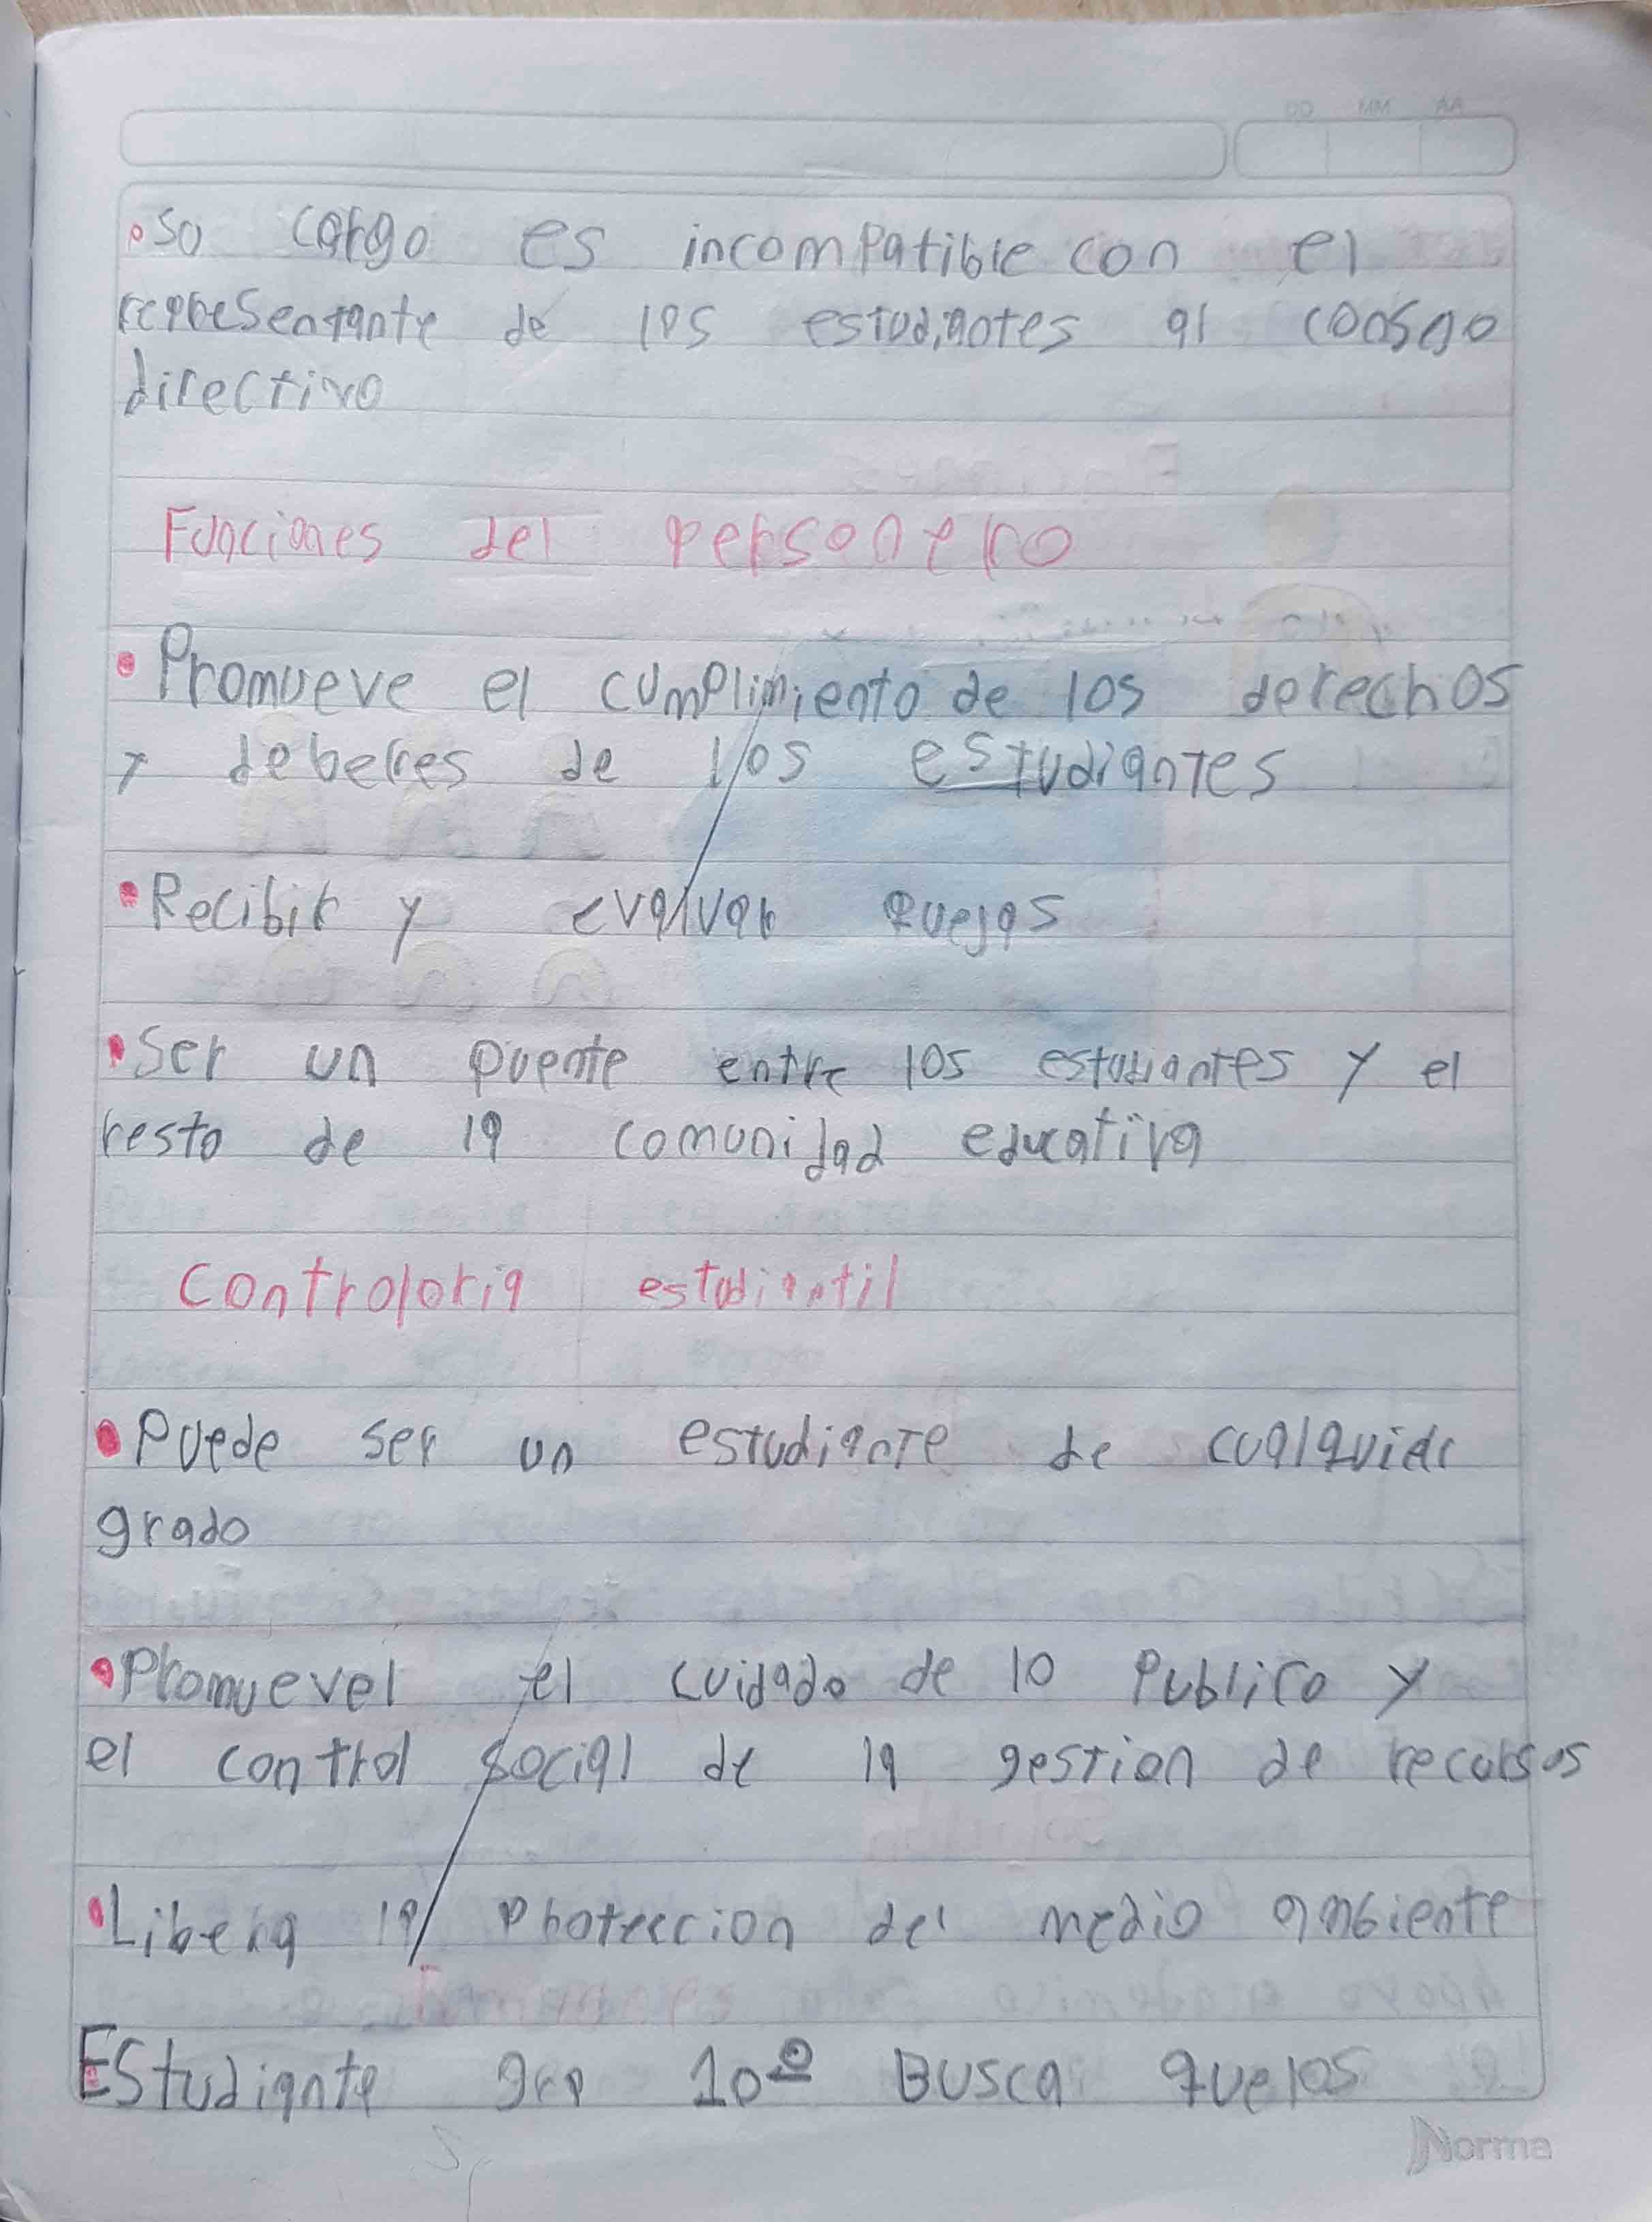 DD MM AA
• So cargo es incompatible con el
representante de los estudiantes al consejo
directivo
Funciones del personero
• Promueve el cumplimiento de los derechos
y deberes de los estudiantes
• Recibir y evaluar quejas
• Ser un puente entre los estudiantes y el
resto de la comunidad educativa
Controloria estudiantil
• Puede ser un estudiante de cualquier
grado
• Promuevel el cuidado de lo Publico y
el control social de la gestion de recursos
• Libera la proteccion del medio ambiente
EStudiante 10º Busca que los
Norma